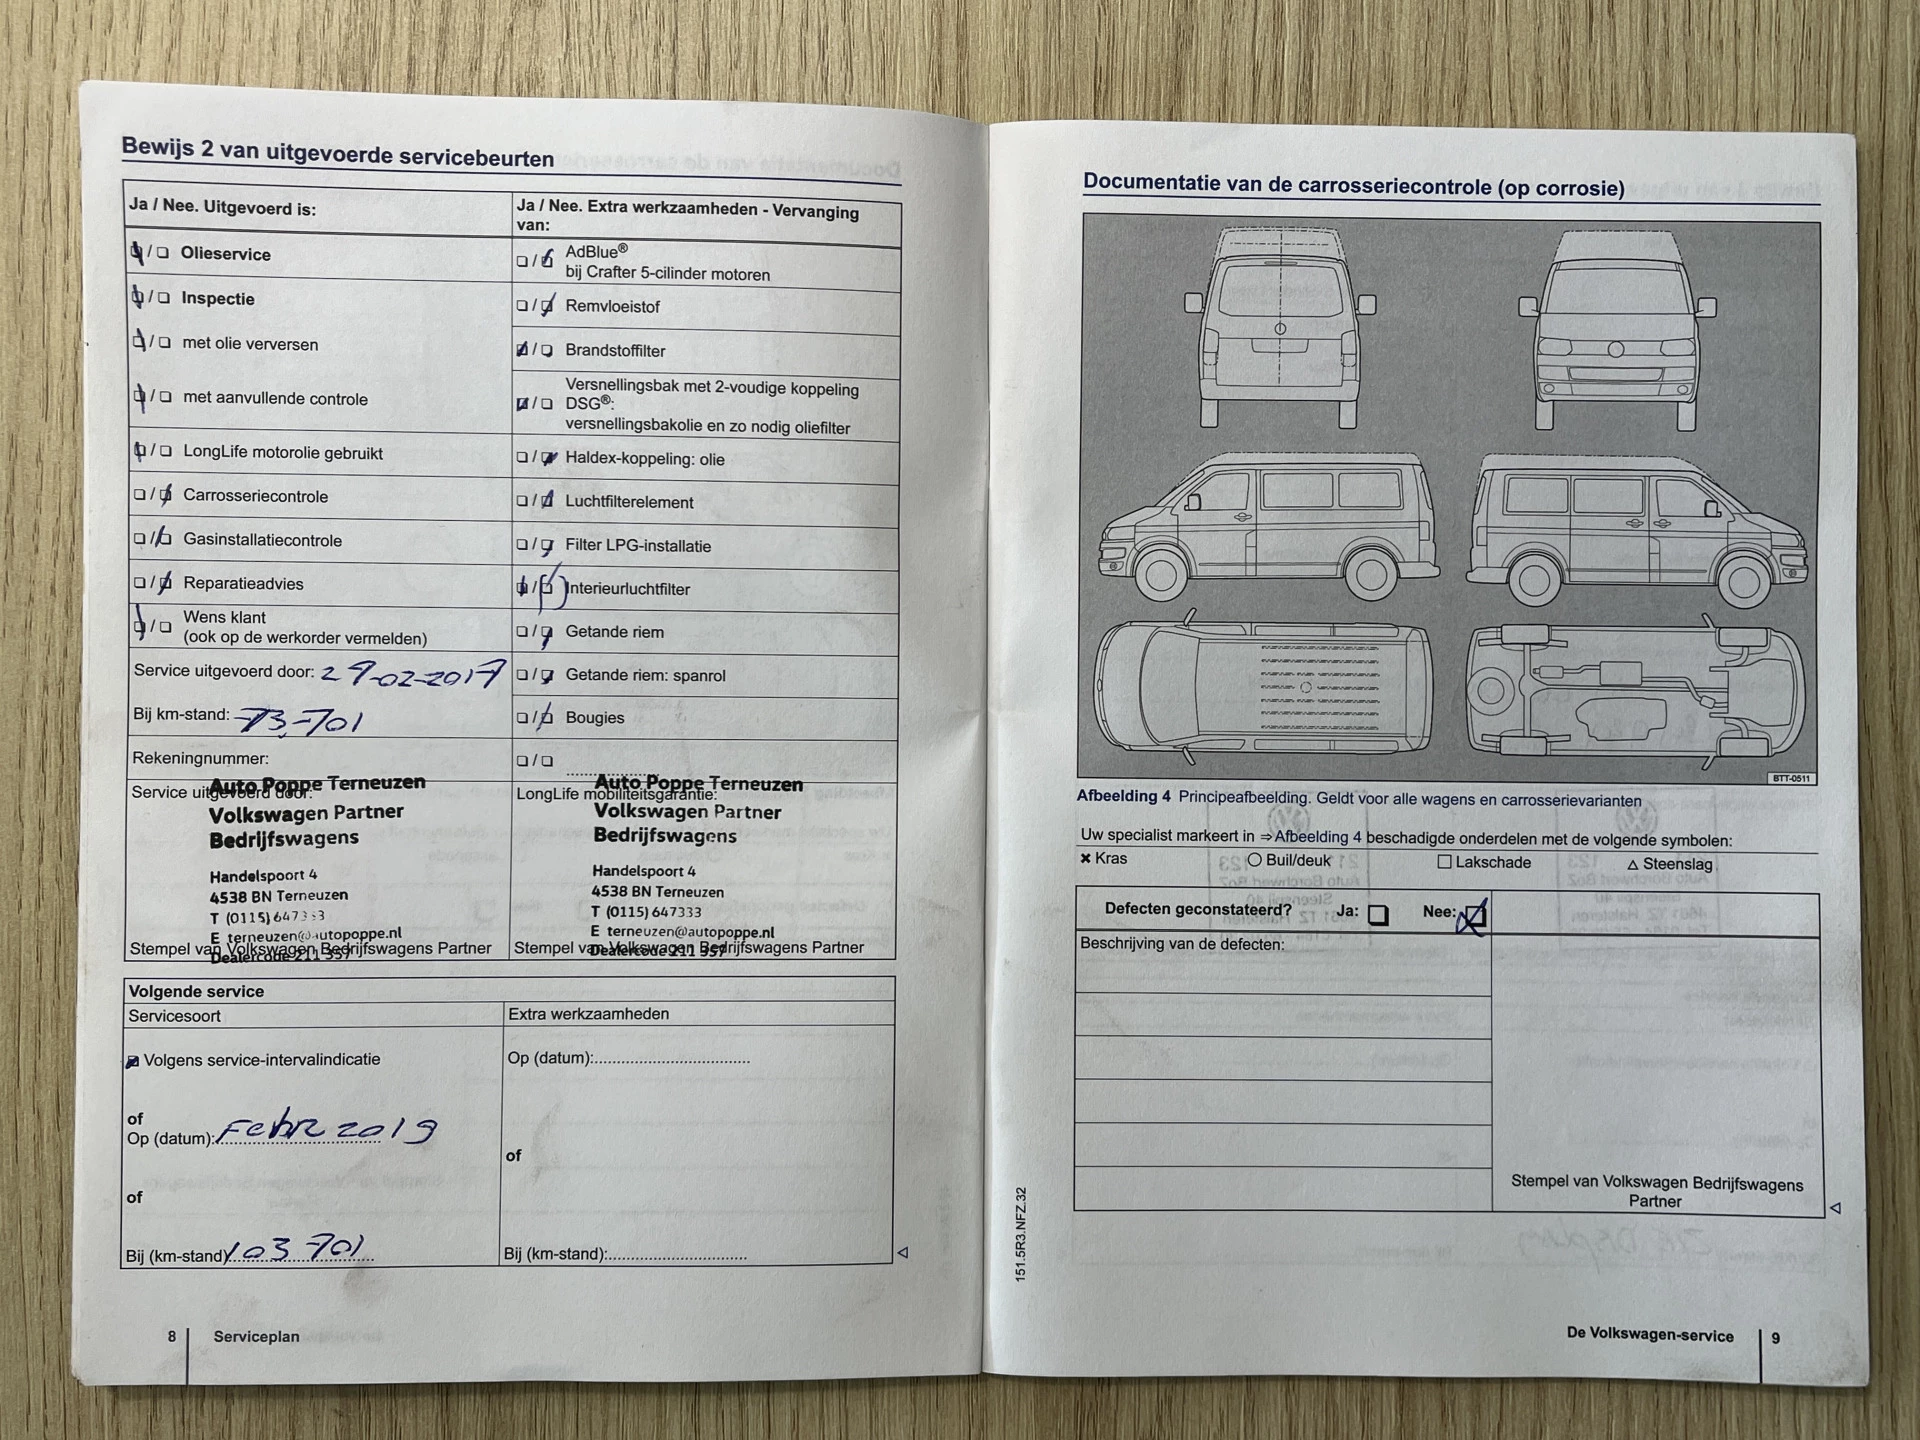 Bewijs 2 van uitgevoerde servicebeurten
Ja / Nee. Uitgevoerd is:
Olieservice
Inspectie
met olie verversen
met aanvullende controle
LongLife motorolie gebruikt
Carrosseriecontrole
Gasinstallatiecontrole
Reparatieadvies
Wens klant
(ook op de werkorder vermelden)
Service uitgevoerd door: 27-02-2017
Bij km-stand: 73-701
Rekeningnummer:
Service uitgevoerd door:
Auto Poppe Terneuzen
Volkswagen Partner
Bedrijfswagens
Handelspoort 4
4538 BN Terneuzen
T (0115) 647333
E terneuzen@autopoppe.nl
Dealercode 211 357
Stempel van Volkswagen Bedrijfswagens Partner
Ja / Nee. Extra werkzaamheden - Vervanging
van:
AdBlue®
bij Crafter 5-cilinder motoren
Remvloeistof
Brandstoffilter
Versnellingsbak met 2-voudige koppeling
DSG®:
versnellingsbakolie en zo nodig oliefilter
Haldex-koppeling: olie
Luchtfilterelement
Filter LPG-installatie
Interieurluchtfilter
Getande riem
Getande riem: spanrol
Bougies
LongLife mobiliteitsgarantie:
Auto Poppe Terneuzen
Volkswagen Partner
Bedrijfswagens
Handelspoort 4
4538 BN Terneuzen
T (0115) 647333
E terneuzen@autopoppe.nl
Dealercode 211 357
Stempel van Volkswagen Bedrijfswagens Partner
Volgende service
Servicesoort
Volgens service-intervalindicatie
of
Op (datum): Febr 2019
of
Bij (km-stand) 103 701
Extra werkzaamheden
Op (datum):
of
Bij (km-stand):
8 Serviceplan
Documentatie van de carrosseriecontrole (op corrosie)
BTT-0511
Afbeelding 4 Principeafbeelding. Geldt voor alle wagens en carrosserievarianten
Uw specialist markeert in ⇒ Afbeelding 4 beschadigde onderdelen met de volgende symbolen:
Kras Buil/deuk Lakschade Steenslag
Defecten geconstateerd? Ja: Nee:
Beschrijving van de defecten:
Stempel van Volkswagen Bedrijfswagens
Partner
151.5R3.NFZ.32
De Volkswagen-service 9